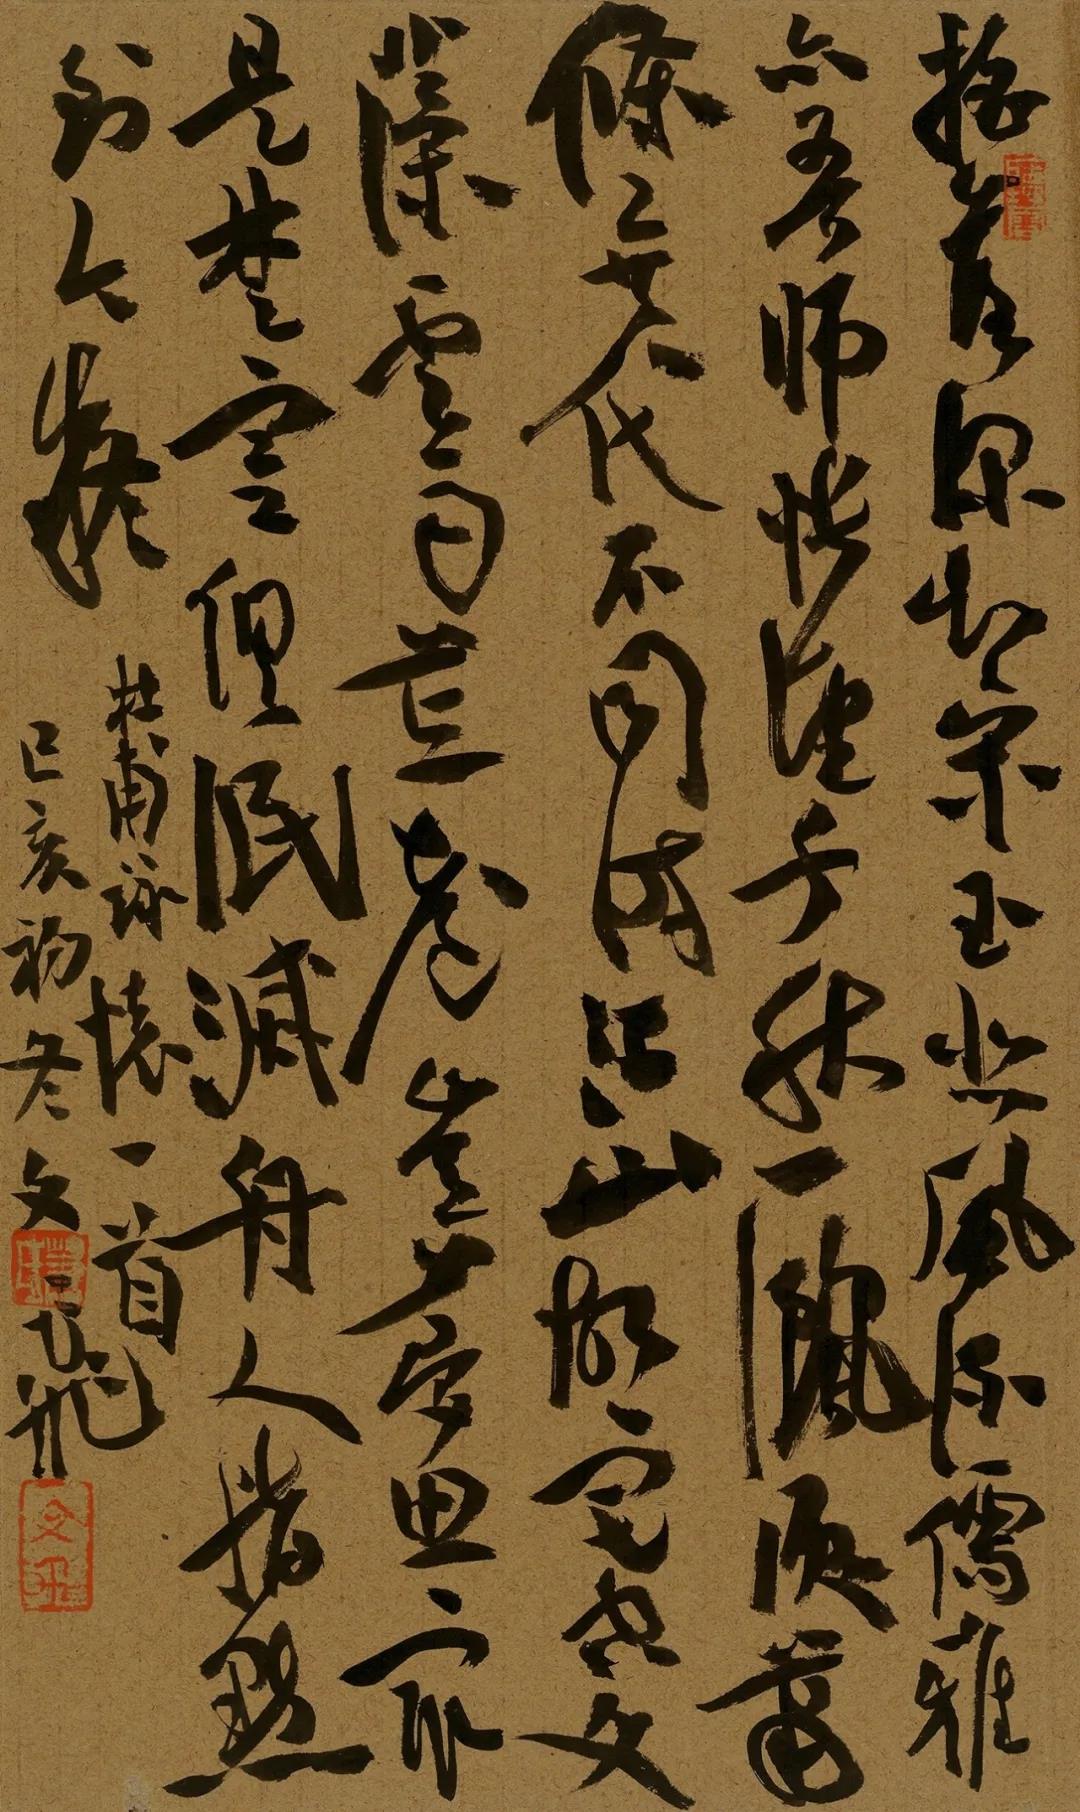 摇落深知宋玉悲风流儒雅
亦吾师怅望千秋一洒泪萧
条异代不同时江山故宅空文
藻云雨荒台岂梦思最
是楚宫俱泯灭舟人指点
到今疑
杜甫咏怀一首
己亥初冬文飞